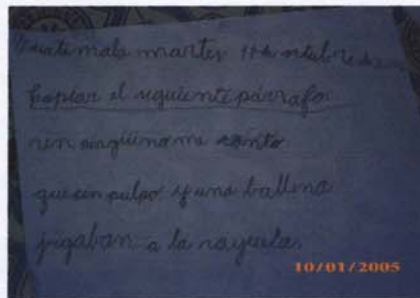 Guatemala martes 11 de octubre de
Copiar el siguiente párrafo:
un pingüino me conto
que un pulpo y una ballena
jugaban a la rayuela.
10/01/2005